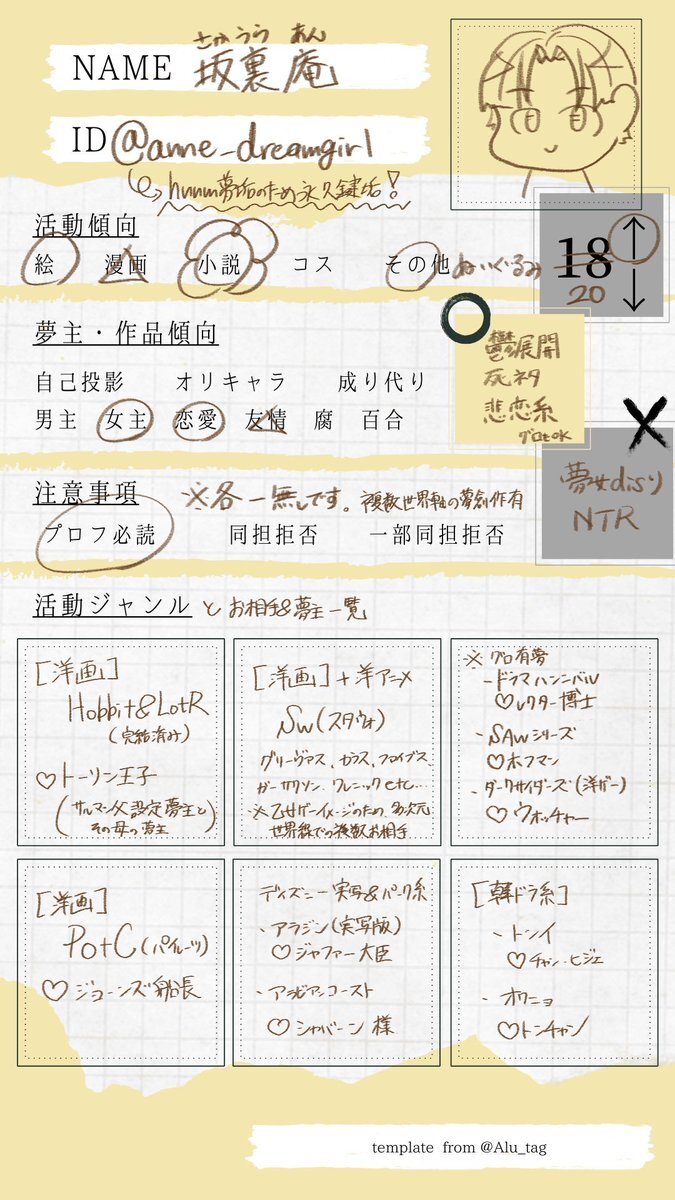 さかうら あん
NAME 坂裏庵
ID @anne_dreamgirl
hnnm夢垢のため永久鍵垢!
活動傾向
絵 漫画 小説 コス その他 ぬいぐるみ
18
20
↑
↓
夢主・作品傾向
自己投影 オリキャラ 成り代り
男主 女主 恋愛 友情 腐 百合
鬱展開
死ネタ
悲恋系
グロもok
夢女disり
NTR
注意事項
※各一無しです。複数世界軸の夢創作有
プロフ必読 同担拒否 一部同担拒否
活動ジャンル とお相手&夢主一覧
[洋画]
Hobbit&LotR
(完結済み)
♡トーリン王子
(サルマン父設定夢主と
その母の夢主
[洋画]+洋アニメ
SW(スタウォ)
グリーヴァス、
ガーサリソン、クレニックetc...
※乙女ゲーイメージのため、多次元
世界線での複数お相手
※グロ有夢
・ドラマハンニバル
♡レクター博士
・SAWシリーズ
♡ホフマン
・ダークサイダーズ(洋ゲー)
♡ウォッチャー
[洋画]
PotC(パイレーツ)
♡ジョーンズ船長
ディズニー実写&パーク系
・アラジン(実写版)
♡ジャファー大臣
・アラビアンコースト
♡シャバーン様
[韓ドラ系]
・トンイ
♡チャン・ヒジェ
・オクニョ
♡トンチャン
template from @Alu_tag